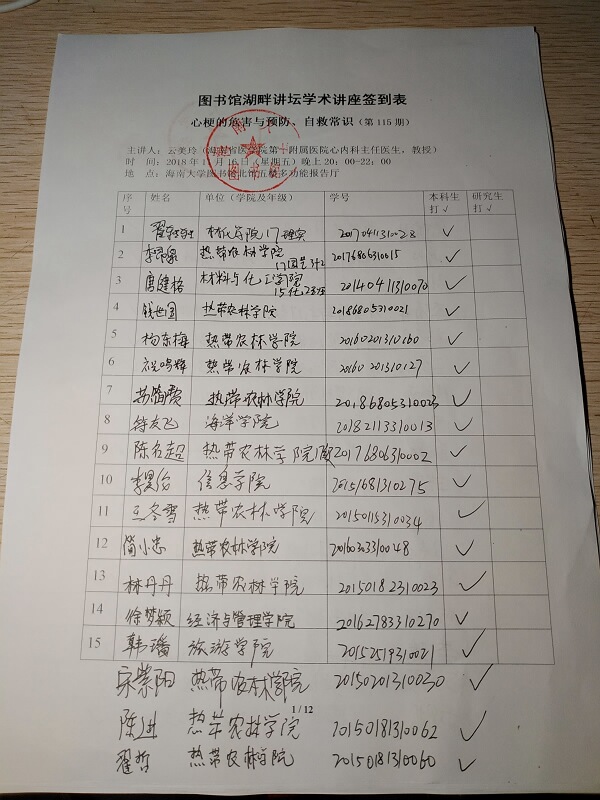 图书馆湖畔讲坛学术讲座签到表
心梗的危害与预防、自救常识（第 115 期）
主讲人：云美玲（海南省医学院第一附属医院心内科主任医生，教授）
时 间：2018 年 11 月 16 日（星期五）晚上 20：00-22：00
地 点：海南大学图书馆北馆五楼多功能报告厅
序号 姓名 单位（学院及年级） 学号 本科生打√ 研究生打√
1 翟 学院 17 20170411310028 √
2 李 热带农林学院 20176806310015 √
17园艺
3 唐健格 材料与化工学院 20140411310070 √
15化工
4 钱世国 热带农林学院 20186805310021 √
5 杨东梅 热带农林学院 20160201310160 √
6 祝鸣 热带农林学院 20160201310127 √
7 苏 霞 热带农林学院 20186805310023 √
8 符友飞 海洋学院 20182113310013 √
9 陈名超 热带农林学院 20176806310002 √
10 李昊俊 信息学院 20151681310275 √
11 王冬雪 热带农林学院 20150115310034 √
12 简小忠 热带农林学院 20160303310048 √
13 林丹丹 热带农林学院 20150182310023 √
14 徐梦颖 经济与管理学院 20162783310270 √
15 韩璠 旅游学院 20152519310021 √
宋紫阳 热带农林学院 20150201310030 √
1 / 12
陈进 热带农林学院 20150181310062 √
翟哲 热带农林学院 20150181310060 √